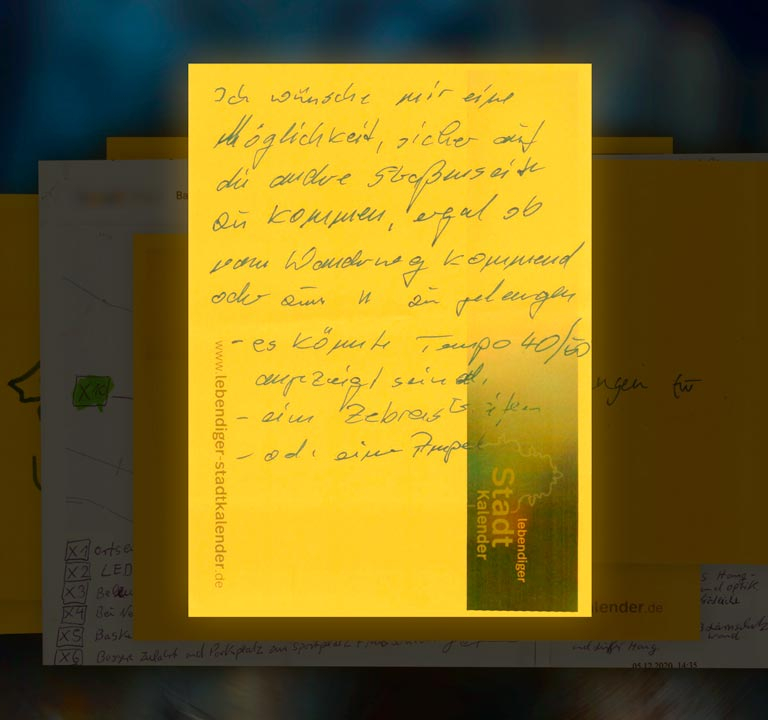 Ich wünsche mir eine
Möglichkeit, sicher auf
die andre Straßenseite
zu kommen, egal ob
vom Wanderweg kommend
oder zum " zu gelangen
- es könnte Tempo 40/50
angezeigt sein
- ein Zebrastreifen
- od. eine Ampel
www.lebendiger-stadtkalender.de
lebendiger
Stadt
Kalender
Ba
X10
ngen für
X1 Ortse
X2 LED
X3
X4 Bei Ne
X5 Baske
X6 Bessere Zufahrt und Parkplatz am Sportplatz
s Hang-
und optik
alender.de
wand
und Hang
05.12.2020, 14:35